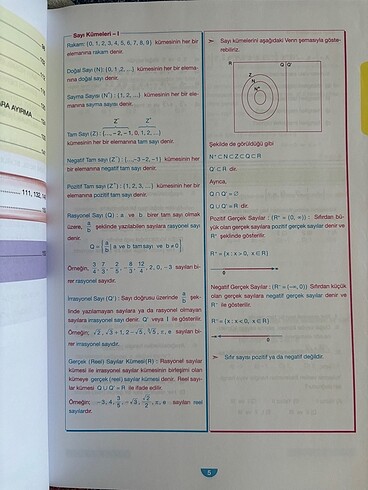 96
110
ARA AYIRMA
111, 132, 14
Sayı Kümeleri – I
Rakam: {0, 1, 2, 3, 4, 5, 6, 7, 8, 9} kümesinin her bir
elemanına rakam denir.
Doğal Sayı (N): {0, 1, 2, ...} kümesinin her bir elema-
nına doğal sayı denir.
Sayma Sayısı (N⁺) : {1, 2, ...} kümesinin her bir ele-
manına sayma sayısı denir.
Z⁻ Z⁺
Tam Sayı (Z) : {..., –2, –1, 0, 1, 2, ...}
kümesinin her bir elemanına tam sayı denir.
Negatif Tam Sayı (Z⁻) : {...,–3 –2, –1} kümesinin her
bir elemanına negatif tam sayı denir.
Pozitif Tam sayı (Z⁺) : {1, 2, 3, ...} kümesinin her bir
elemanına pozitif tam sayı denir.
Rasyonel Sayı (Q) : a ve b birer tam sayı olmak
üzere, a/b şeklinde yazılabilen sayılara rasyonel sayı
denir.
Q = { a/b | a ve b tam sayı ve b ≠ 0 }
sayıları bi-
rer rasyonel sayıdır.
İrrasyonel Sayı (Q') : Sayı doğrusu üzerinde a/b şek-
linde yazılamayan sayılara ya da rasyonel olmayan
sayılara irrasyonel sayı denir. Q' veya I ile gösterilir.
Örneğin; √2, √3+1, 2–√5, π, e sayıları bi-
rer irrasyonel sayıdır.
Gerçek (Reel) Sayılar Kümesi (R) : Rasyonel sayılar
kümesi ile irrasyonel sayılar kümesinin birleşimi olan
kümeye gerçek (reel) sayılar kümesi denir. Reel sayı-
lar kümesi Q ∪ Q' = R ile ifade edilir.
Örneğin; –3, 4, 3/5, –√3, √2/2, π, e sayıları reel
sayılardır.
➤ Sayı kümelerini aşağıdaki Venn şemasıyla göste-
rebiliriz.
R Q Q'
Z
N
N⁺
Şekilde de görüldüğü gibi
N⁺ ⊂ N ⊂ Z ⊂ Q ⊂ R
Q' ⊂ R dir.
Ayrıca,
Q ∩ Q' = ∅
Q ∪ Q' = R dir.
Pozitif Gerçek Sayılar : (R⁺ = (0, ∞)) : Sıfırdan bü-
yük olan gerçek sayılara pozitif gerçek sayılar denir ve
R⁺ şeklinde gösterilir.
R⁺ = {x : x > 0, x ∈ R}
0
Negatif Gerçek Sayılar : (R⁻ = (–∞, 0)) Sıfırdan küçük
olan gerçek sayılara negatif gerçek sayılar denir ve
R⁻ ile gösterilir.
R⁻ = {x : x < 0, x ∈ R}
0
➤ Sıfır sayısı pozitif ya da negatif değildir.
5